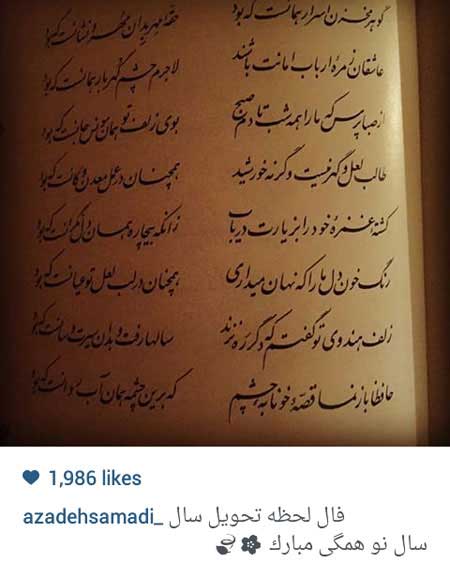 گوهر مخزن اسرار همانست که بود حقه مهر بدان مهر و نشانست که بود
عاشقان زمرهٔ ارباب امانت باشند لاجرم چشم گهربار همانست که بود
از صبا پرس که ما را همه شب تا دم صبح بوی زلف تو همان مونس جانست که بود
طالب لعل و گهر نیست وگرنه خورشید همچنان در عمل معدن و کانست که بود
کشتهٔ غمزهٔ خود را بزیارت دریاب زانکه بیچاره همان دل‌نگرانست که بود
رنگ خون دل ما را که نهان میداری همچنان در لب لعل تو عیانست که بود
زلف هندوی تو گفتم که دگر ره نزند سالها رفت و بدان سیرت و سانست که بود
حافظا باز نما قصهٔ خونابه چشم که برین چشمه همان آب روانست که بود
1,986 likes
azadehsamadi_ فال لحظه تحویل سال
سال نو همگی مبارك